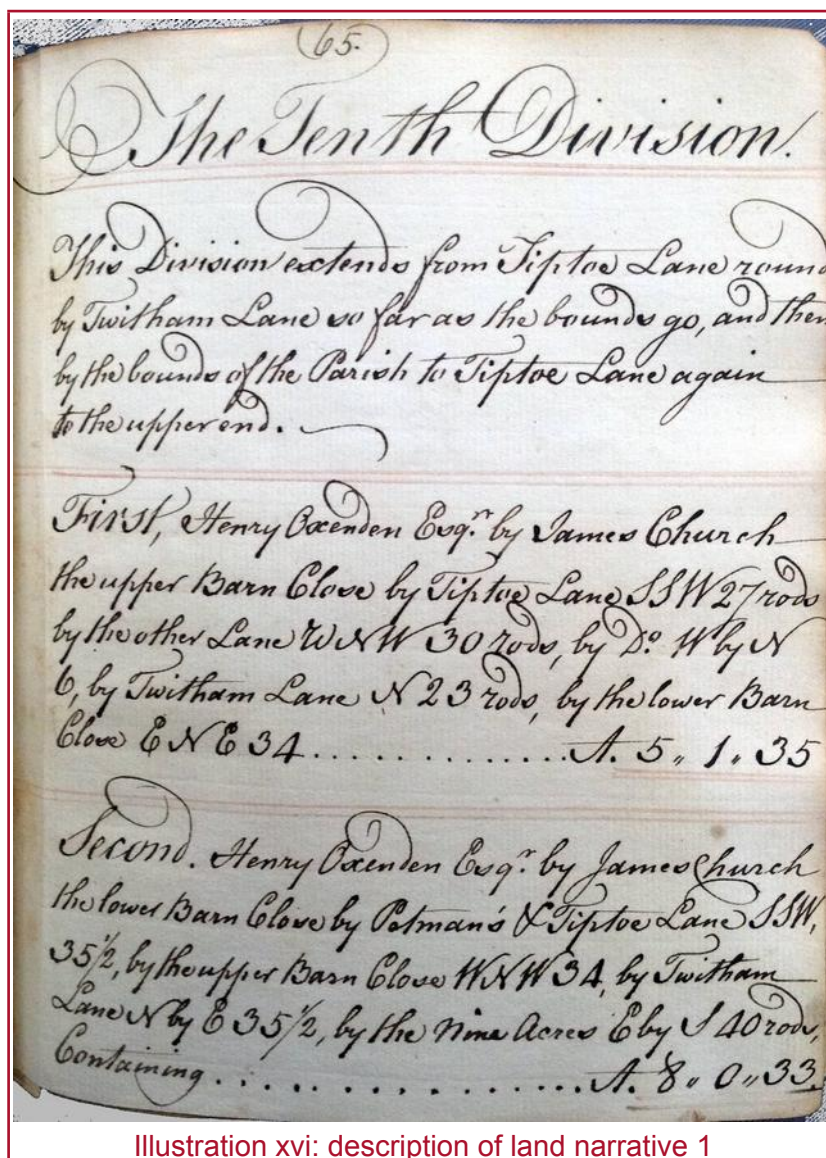 65.
The Tenth Division.
This Division extends from Tiptoe Lane round
by Twitham Lane so far as the bounds go, and then
by the bounds of the Parish to Tiptoe Lane again
to the upper end.
First, Henry Oxenden Esq.r by James Church
the upper Barn Close by Tiptoe Lane SSW 27 rods
by the other Lane WNW 30 rods, by Do. W by N
6, by Twitham Lane N 23 rods, by the lower Barn
Close ENE 34..............A. 5 〃 1 〃 35
Second. Henry Oxenden Esq.r by James Church
the lower Barn Close by Petman's & Tiptoe Lane SSW,
35 1/2, by the upper Barn Close WNW 34, by Twitham
Lane N by E 35 1/2, by the Nine Acres E by S 40 rods,
Containing..................A. 8 〃 0 〃 33.
Illustration xvi: description of land narrative 1